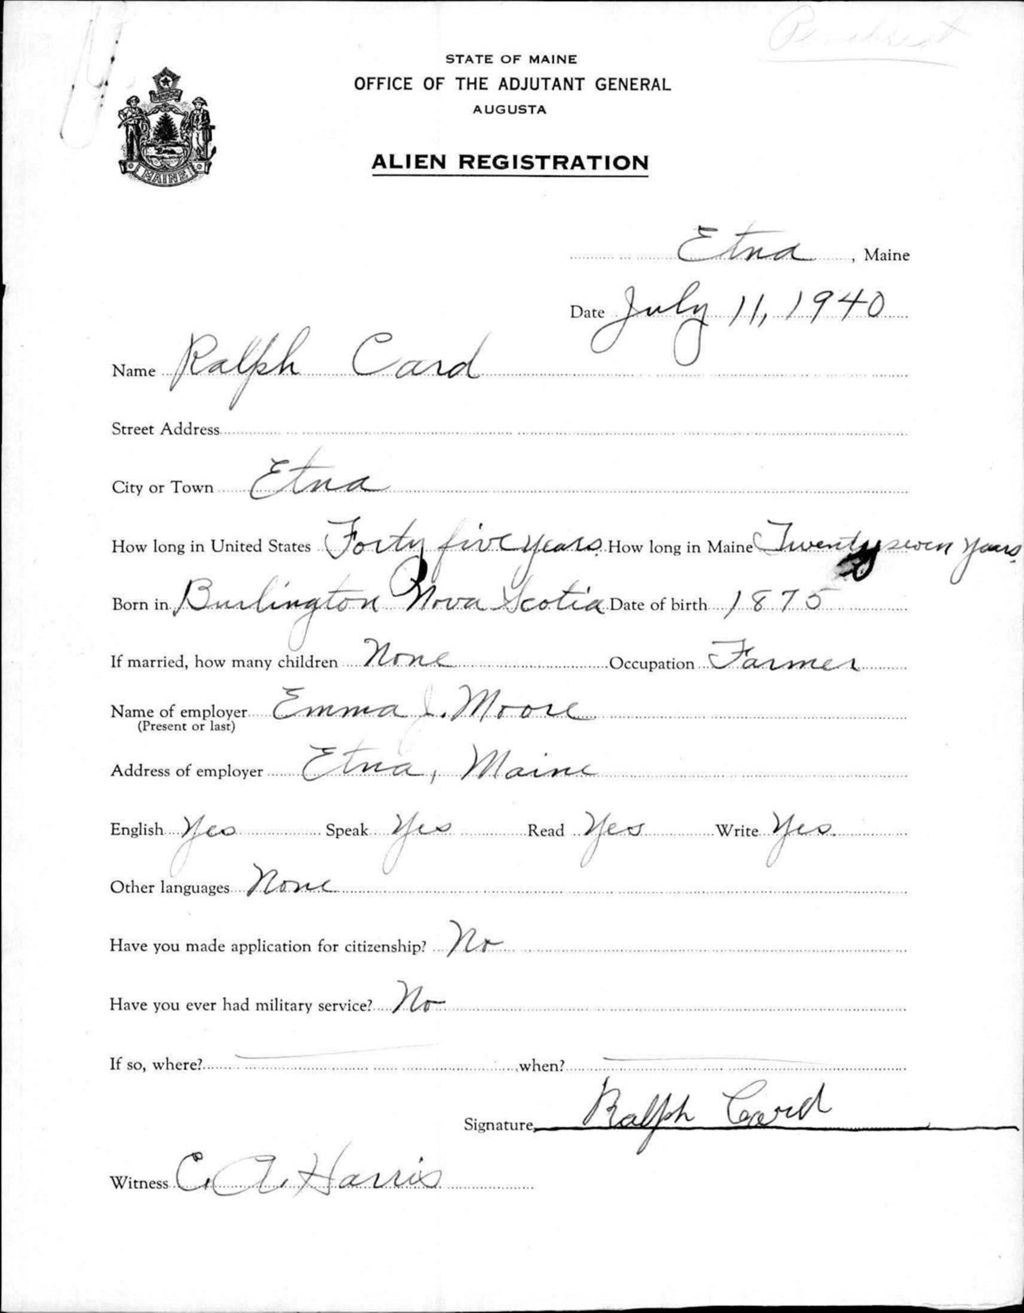 STATE OF MAINE
OFFICE OF THE ADJUTANT GENERAL
AUGUSTA
ALIEN REGISTRATION
Etna, Maine
Date July 11, 1940
Name Ralph Card
Street Address
City or Town Etna
How long in United States Forty five years. How long in Maine Twenty seven years.
Born in Burlington Nova Scotia Date of birth 1875
If married, how many children None Occupation Farmer
Name of employer Emma J. Moore
(Present or last)
Address of employer Etna, Maine
English Yes Speak Yes Read Yes Write Yes.
Other languages None
Have you made application for citizenship? No
Have you ever had military service? No
If so, where? when?
Signature Ralph Card
Witness C. A. Harris